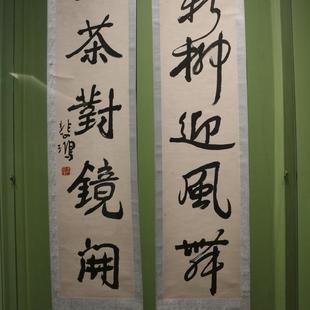 新柳迎風舞
茶對鏡開
悲鴻